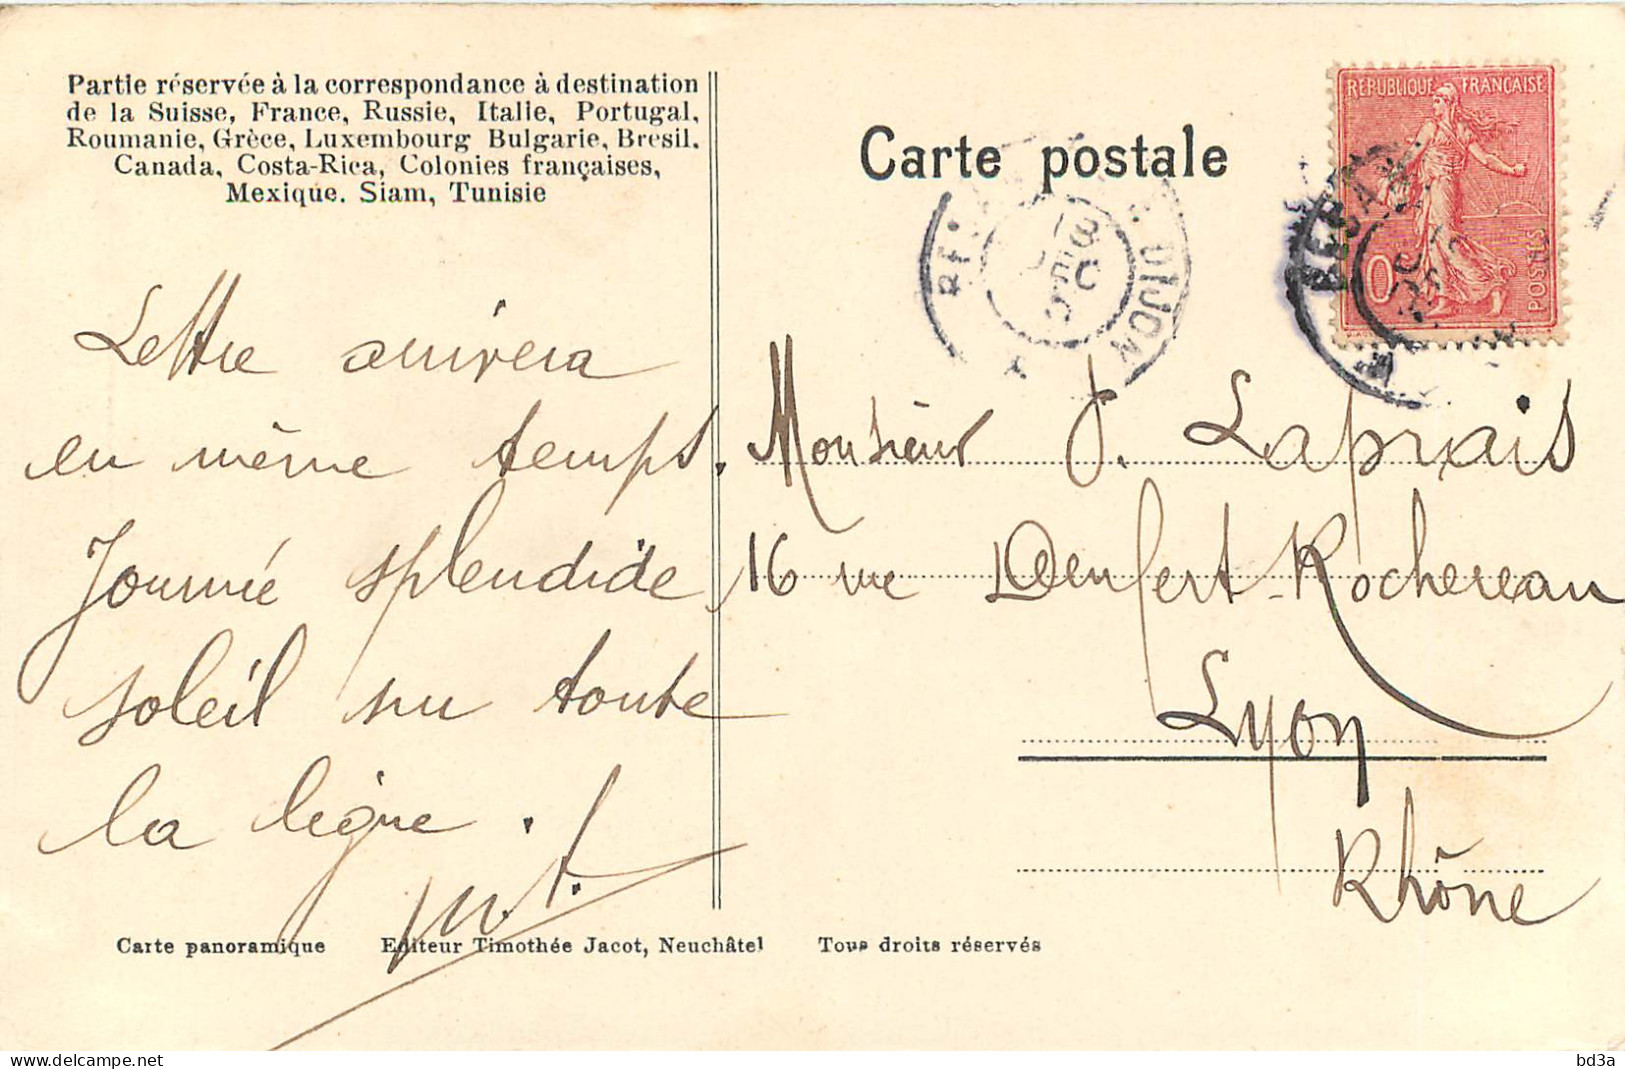 Partie réservée à la correspondance à destination
de la Suisse, France, Russie, Italie, Portugal,
Roumanie, Grèce, Luxembourg Bulgarie, Bresil.
Canada, Costa-Rica, Colonies françaises,
Mexique. Siam, Tunisie
Carte postale
REPUBLIQUE FRANÇAISE
POSTES
DIJON
Lettre arrivera
en même temps.
Journée splendide
soleil sur toute
la ligne.
Monsieur J. Laprais
16 rue Denfert-Rochereau
Lyon
Rhône
Carte panoramique Editeur Timothée Jacot, Neuchâtel Tous droits réservés
bd3a